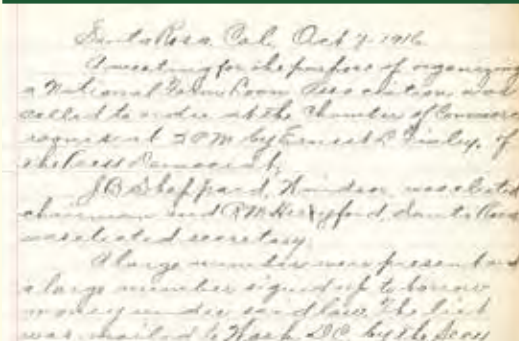 Santa Rosa, Cal, Oct 7 1916
A meeting for the purpose of organizing
a National Farm Loan Association was
called to order at the Chamber of Commerce
rooms at 2 PM by Ernest L Finley, of
the Press Democrat,
J B Sheppard, Windsor was elected
chairman and R M Hereford, Santa Rosa
was elected secretary.
A large number were present and
a large number signed up to borrow
money under said law. The list
was mailed to Wash DC by the Secy